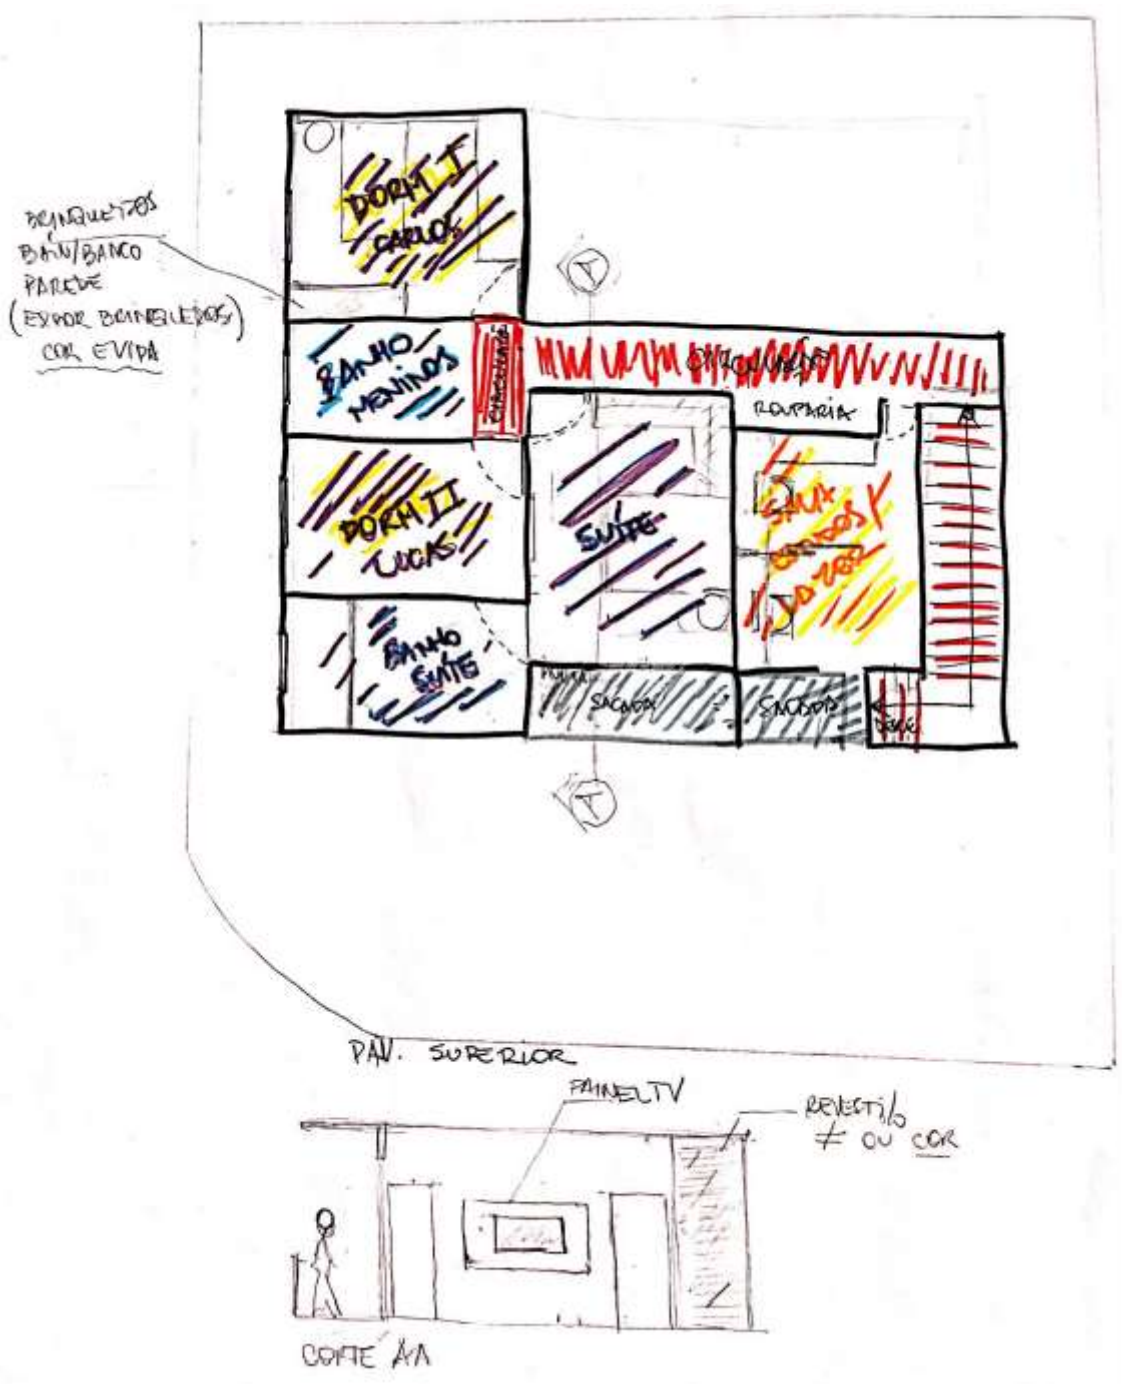 DORM I
CARLOS
BRINQUEDOS
BAÚ/BANCO
PAREDE
(EXPOR BRINQUEDOS)
COR EVIDA
A
BANHO
MENINOS
CIRCULAÇÃO
CIRCULAÇÃO
ROUPARIA
DORM II
LUCAS
SUÍTE
SALA
ESTUDOS Y
LAZER
BANHO
SUÍTE
SACADA
SACADA
DESCE
A
PAV. SUPERIOR
PAINEL TV
REVESTI/o
≠ OU COR
CORTE AA